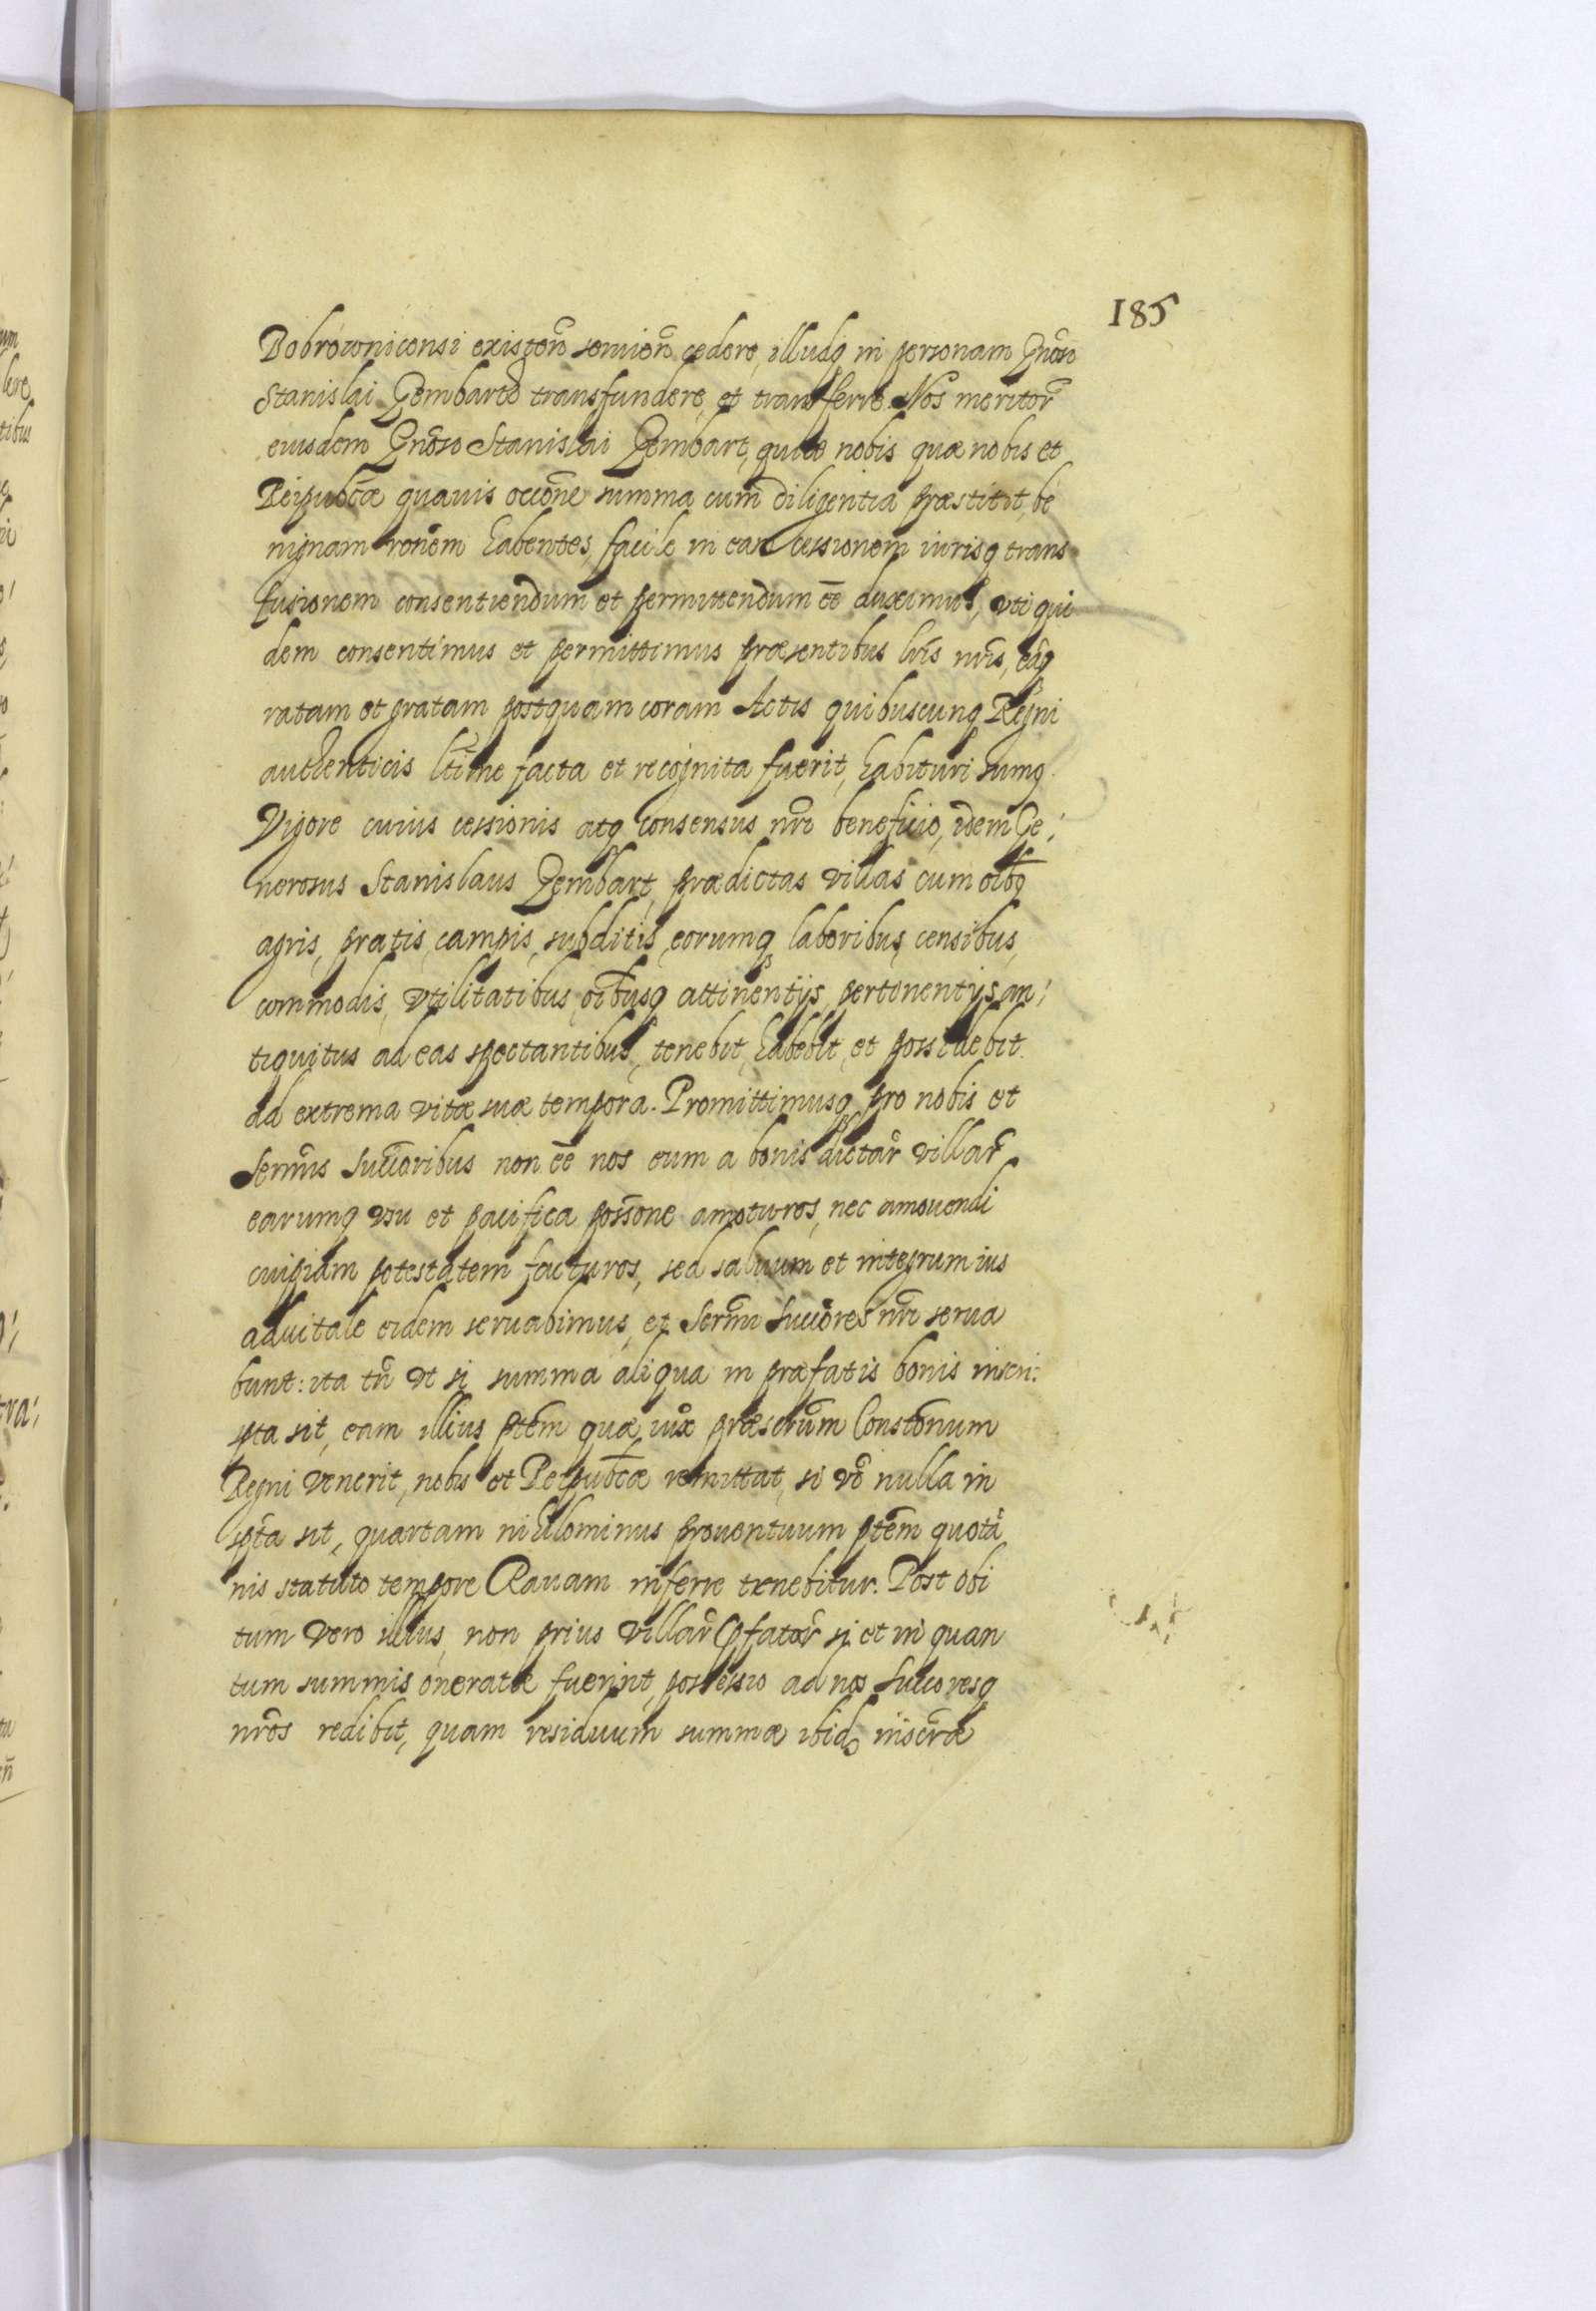 185
Bobrownicensi existen̄ servien̄ cedere, illudq, in personam Gn̄osi
Stanislai Gembarth transfundere, et transferre. Nos meritor̄
eiusdem Gn̄osi Stanislai Gembart, quae nobis quæ nobis et
Reipub̄cæ quavis occōne summa cum diligentia præstitit, be
nignam rōnem habentes, facile in eam cessionem iurisq trans
fusionem consentiendum et permittendum ēē duximus, uti qui
dem consentimus et permittimus præsentibus lr̄is nr̄is, eāq
ratam et gratam postquam coram Actis quibuscunq Regni
authenticis lt̄ime facta et recognita fuerit, habituri sumq.
Vigore cuius cessionis atq consensus nr̄i beneficio, idem Ge:
nerosus Stanislaus Gembart, prædictas villas cum oībq
agris, pratis, campis, subditis, eorumq laboribus, censibus,
commodis, utilitatibus, oībusq attinentijs, pertinentijs an:
tiquitus ad eas spectantibus, tenebit, habebit, et possidebit
ad extrema vitæ suæ tempora. Promittimusq pro nobis et
Serm̄is Succōribus non ēē nos eum a bonis dictar̄ villar̄
earumq usu et pacifica possōne amoturos, nec amovendi
cuipiam potestatem facturos, sed salvum et integrum ius
advitale eidem servabimus, et Serm̄i Succōres nr̄i serva
bunt: ita tn̄ ut si summa aliqua in præfatis bonis inscri:
pta sit, eam illius pt̄em quæ iux̄ præscrūm Constōnum
Regni venerit, nobis et Reipub̄cæ remittat, si vō nulla in
spt̄a sit, quartam nihilominus proventuum pt̄em quotā
nis statuto tempore Ravam inferre tenebitur. Post obi
tum vero illius, non prius villar̄ pfatar̄ si et in quan
tum summis oneratæ fuerint, possessio ad nos Succoresq
nr̄os redibit, quam residuum summæ ibid inscr̄æ